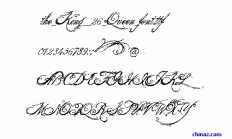 the King & Queen font.ttf
0123456789:; @
ABCDEFGHIJKL
MNOPQRSTUVWXYZ
chinaz.com